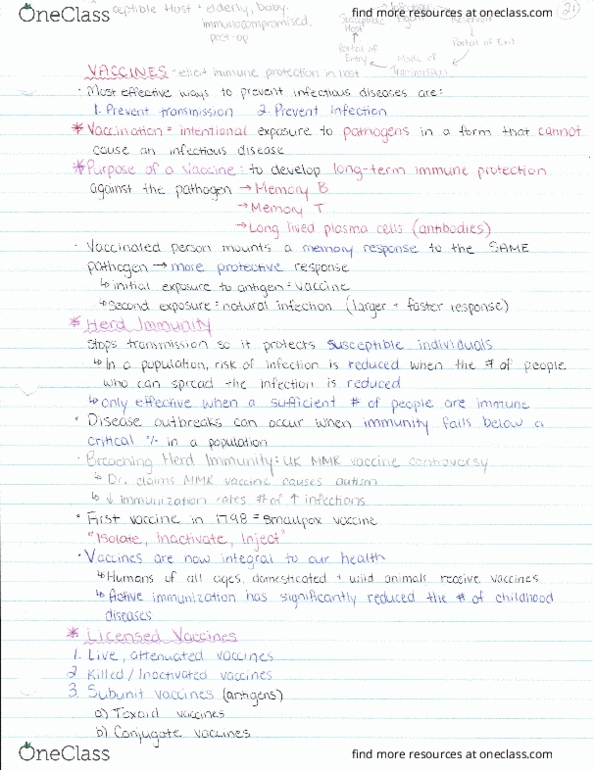 OneClass
find more resources at oneclass.com
21
ceptible Host - elderly, baby,
immunocompromised,
post-op
Susceptible
Host
Portal of
Entry
Mode of
Transmission
Portal of Exit
Reservoir
VACCINES - elicit immune protection in host
· Most effective ways to prevent infectious diseases are:
1. Prevent transmission 2. Prevent Infection
* Vaccination = intentional exposure to pathogens in a form that cannot
cause an infectious disease
* Purpose of a vaccine: to develop long-term immune protection
against the pathogen → Memory B
→ Memory T
→ Long lived plasma cells (antibodies)
· Vaccinated person mounts a memory response to the SAME
pathogen → more protective response
↳ initial exposure to antigen = vaccine
↳ Second exposure = natural infection (larger + faster response)
* Herd Immunity
Stops transmission so it protects susceptible individuals
↳ In a population, risk of infection is reduced when the # of people
who can spread the infection is reduced
↳ only effective when a sufficient # of people are immune
· Disease outbreaks can occur when immunity falls below a
critical % in a population
· Breaching Herd Immunity: UK MMR vaccine controversy
↳ Dr. claims MMR vaccine causes autism
↳ ↓ immunization rates # of ↑ infections
· First vaccine in 1798 = smallpox vaccine
"Isolate, Inactivate, Inject"
· Vaccines are now integral to our health
↳ Humans of all ages, domesticated + wild animals receive vaccines
↳ Active immunization has significantly reduced the # of childhood
diseases
* Licensed Vaccines
1. Live, attenuated vaccines
2. Killed / Inactivated vaccines
3. Subunit vaccines (antigens)
a) Toxoid vaccines
b) Conjugate vaccines
OneClass
find more resources at oneclass.com